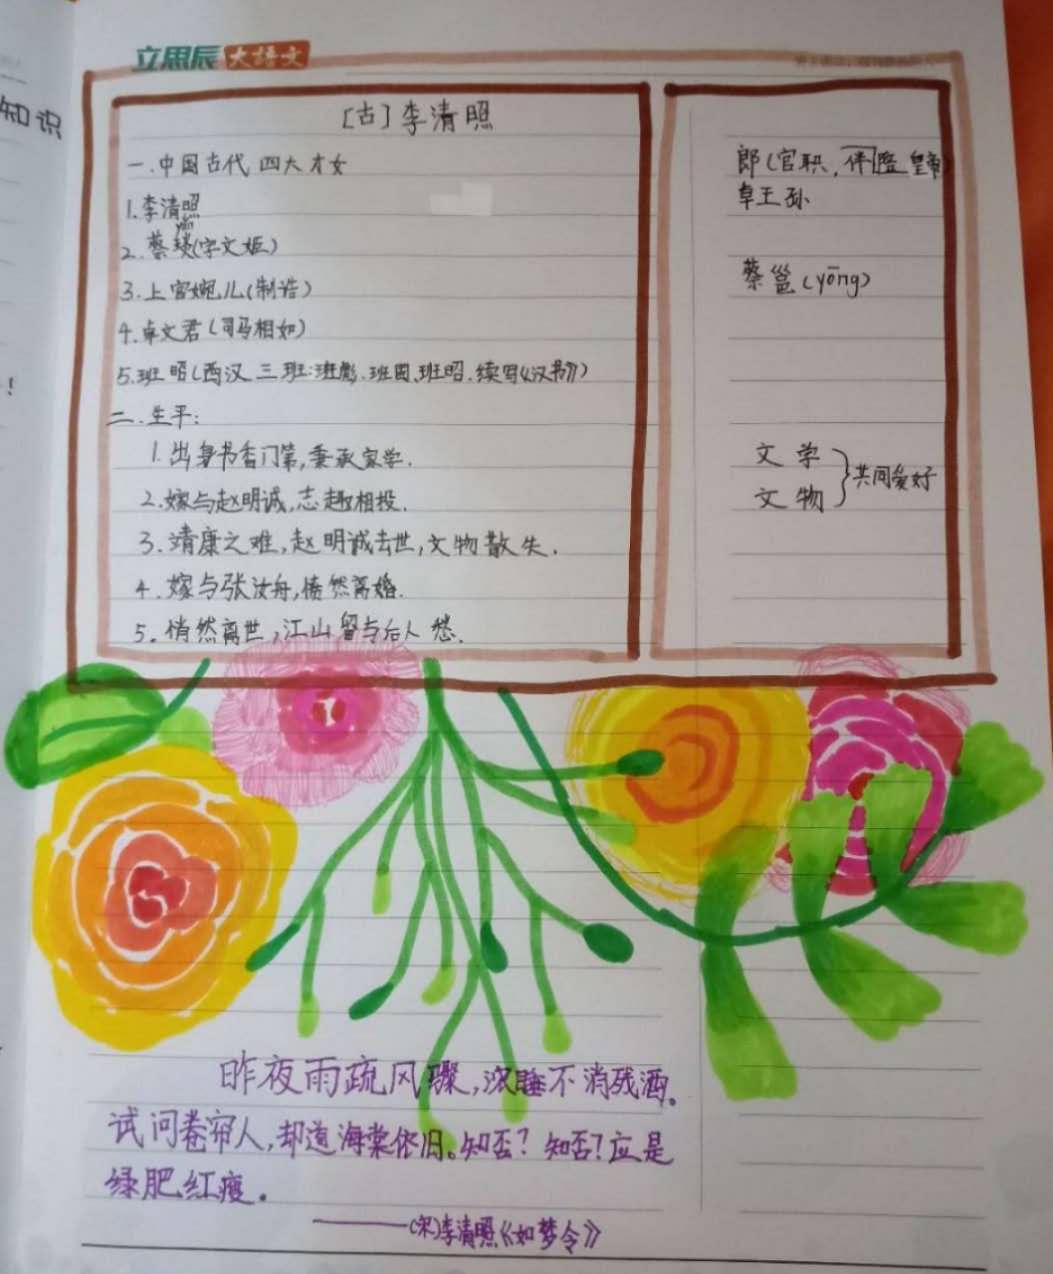 立思辰大语文
知识
[古]李清照
一.中国古代四大才女
1.李清照
yǎn
2.蔡琰(字文姬)
3.上官婉儿(制诰)
4.卓文君(司马相如)
5.班昭(西汉三班:班彪.班固.班昭.续写《汉书》)
二.生平:
1.出身书香门第,秉承家学.
2.嫁与赵明诚,志趣相投.
3.靖康之难,赵明诚去世,文物散失.
4.嫁与张汝舟,愤然离婚.
5.悄然离世,江山留与后人愁.
郎(官职,伴随皇帝)
卓王孙
蔡邕(yōng)
文学
文物
}共同爱好
!
昨夜雨疏风骤,浓睡不消残酒。
试问卷帘人,却道海棠依旧。知否?知否?应是
绿肥红瘦。
——(宋)李清照《如梦令》